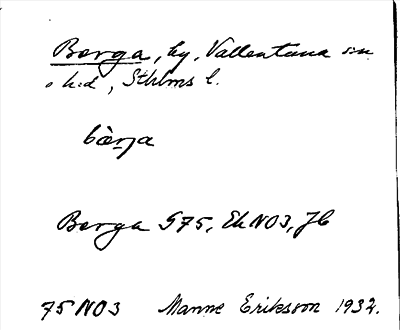 Berga, by, Vallentuna sn
o h:d, Sthlms l.
bærja
Berga G75, Ek NO3, JB
75 NO3 Manne Eriksson 1932.